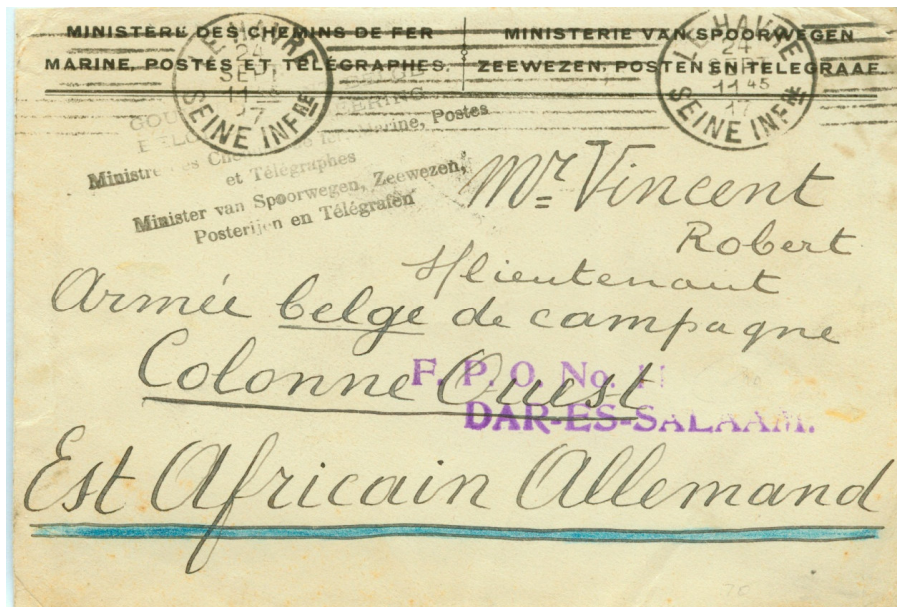 MINISTÈRE DES CHEMINS DE FER
MARINE, POSTES ET TÉLÉGRAPHES.
MINISTERIE VAN SPOORWEGEN
ZEEWEZEN, POSTEN EN TELEGRAAF.
LE HAVRE
24
SEPT
11 45
17
SEINE INFRE
LE HAVRE
24
SEPT
11 45
17
SEINE INFRE
Ministre des Chemins de fer, Marine, Postes
et Télégraphes
Minister van Spoorwegen, Zeewezen,
Posterijen en Télégrafen
Mr Vincent
Robert
S/lieutenant
Armée belge de campagne
Colonne Ouest
F. P. O. No.
DAR-ES-SALAAM.
Est Africain Allemand